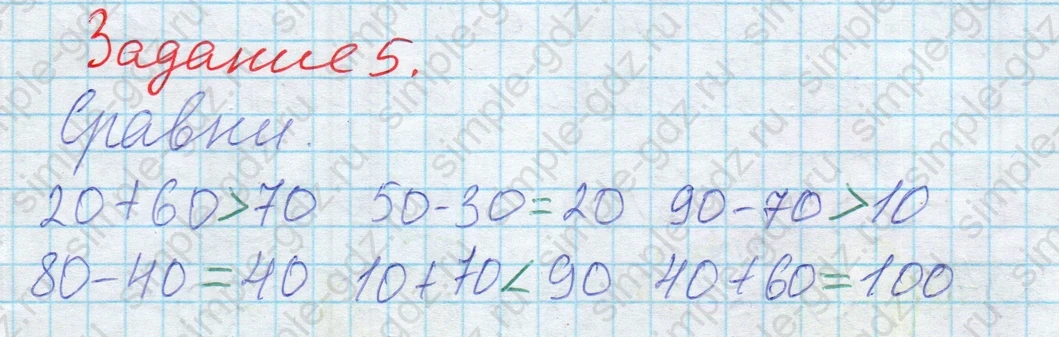 Задание 5.
Сравни.
20+60>70 50-30=20 90-70>10
80-40=40 10+70<90 40+60=100